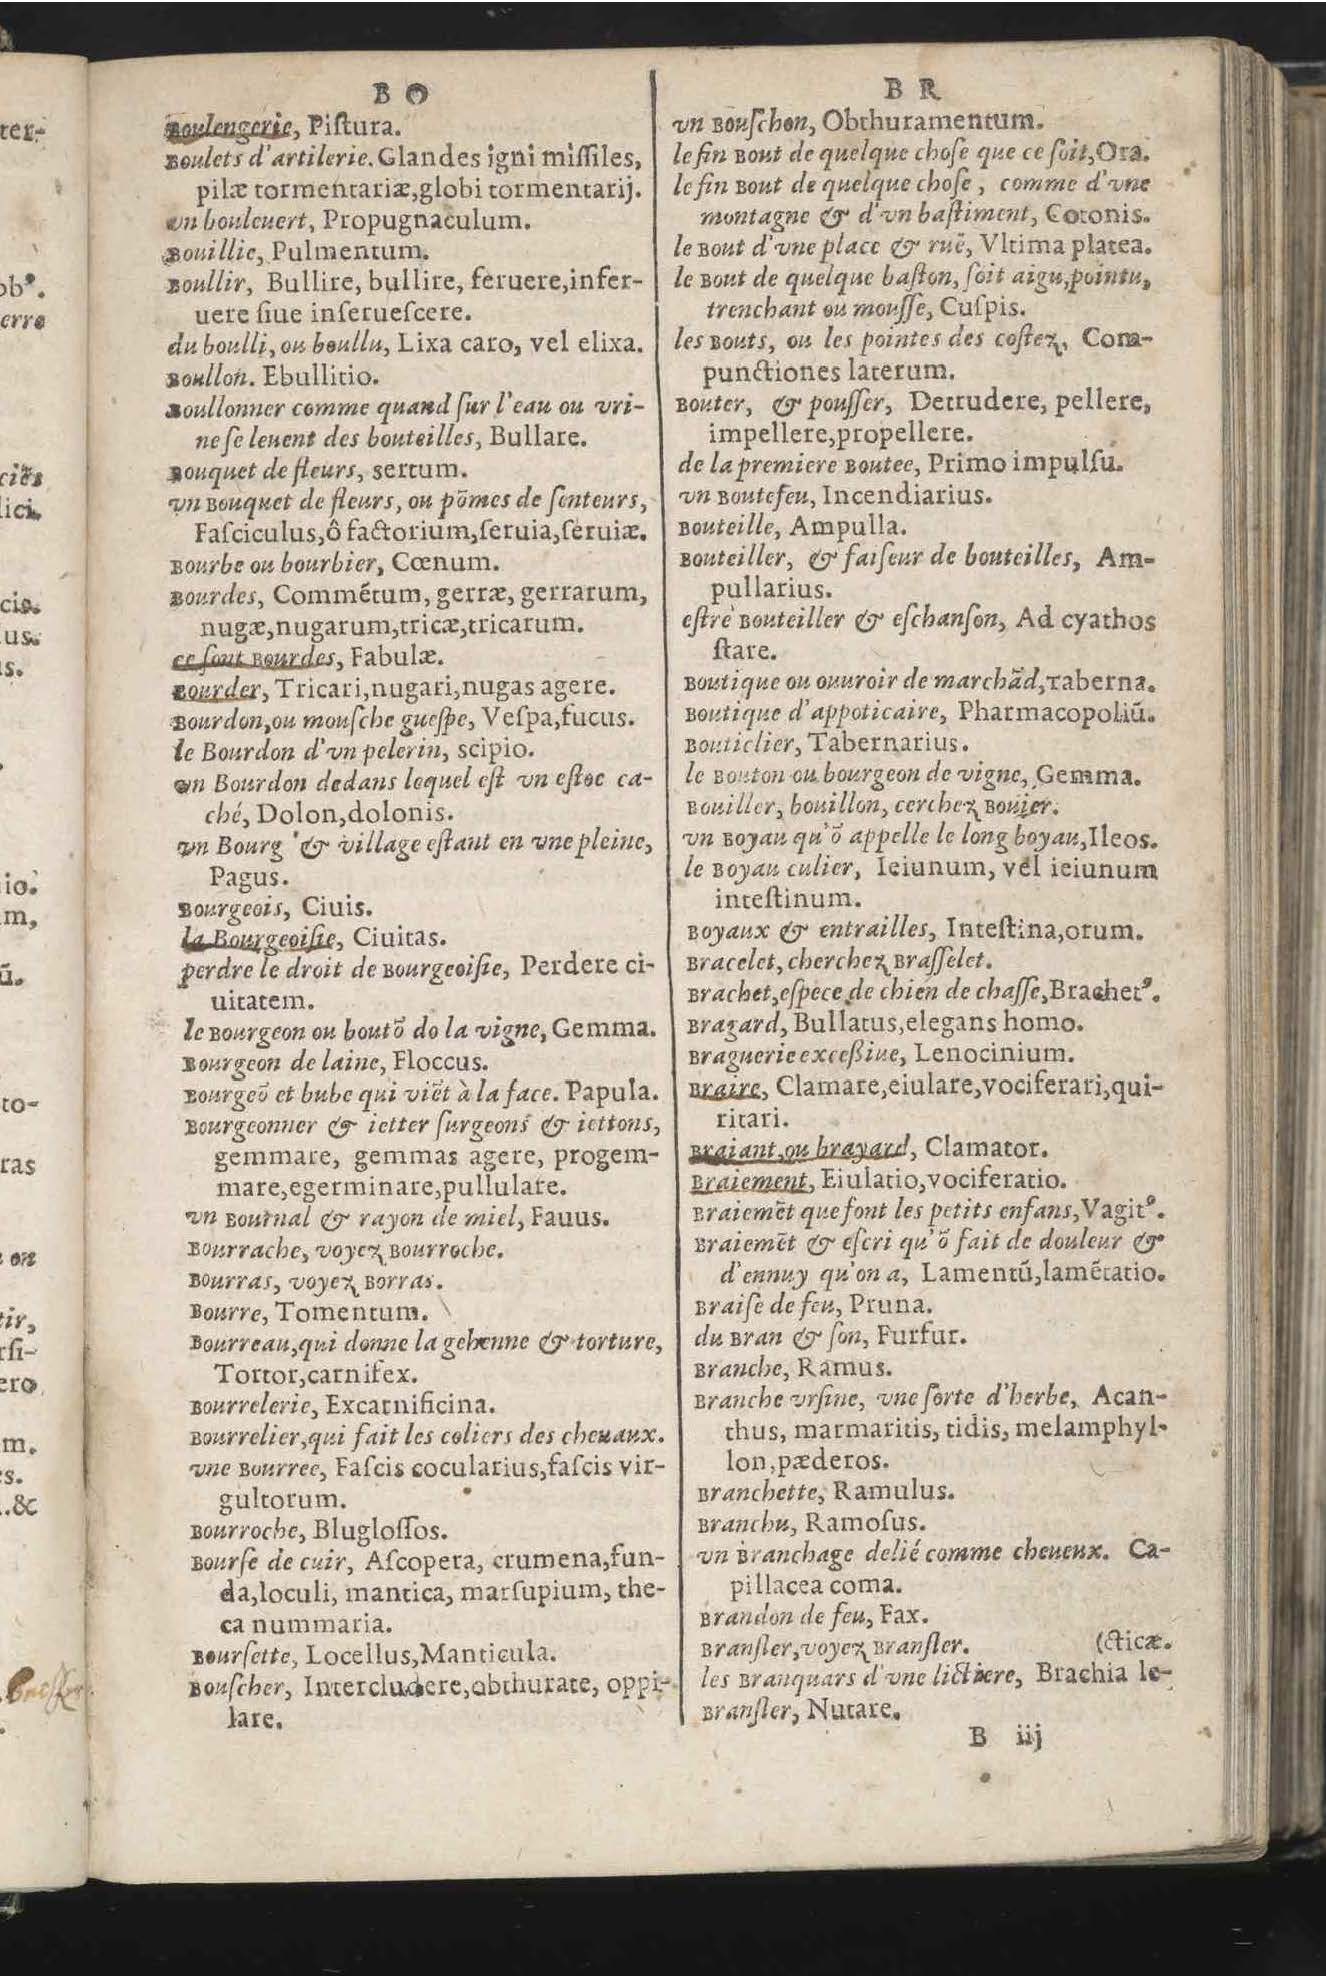 B O
Boulengerie, Piſtura.
Boulets d'artilerie. Glandes igni miſſiles,
pilæ tormentariæ, globi tormentarij.
vn bouleuert, Propugnaculum.
Bouillie, Pulmentum.
Boullir, Bullire, bullire, feruere, infer-
uere ſiue inferueſcere.
du boulli, ou boullu, Lixa caro, vel elixa.
Boullon. Ebullitio.
Boullonner comme quand ſur l'eau ou vri-
ne ſe leuent des bouteilles, Bullare.
Bouquet de fleurs, sertum.
vn Bouquet de fleurs, ou põmes de ſenteurs,
Faſciculus, ô factorium, ſeruia, ſeruiæ.
Bourbe ou bourbier, Cœnum.
Bourdes, Commẽtum, gerræ, gerrarum,
nugæ, nugarum, tricæ, tricarum.
ce ſont Bourdes, Fabulæ.
Bourder, Tricari, nugari, nugas agere.
Bourdon, ou mouſche gueſpe, Veſpa, fucus.
le Bourdon d'vn pelerin, scipio.
vn Bourdon dedans lequel eſt vn eſtoc ca-
ché, Dolon, dolonis.
vn Bourg & village eſtant en vne pleine,
Pagus.
Bourgeois, Ciuis.
la Bourgeoiſie, Ciuitas.
perdre le droit de Bourgeoiſie, Perdere ci-
uitatem.
le Bourgeon ou boutõ do la vigne, Gemma.
Bourgeon de laine, Floccus.
Bourgeõ et bube qui viẽt à la face. Papula.
Bourgeonner & ietter ſurgeons & iettons,
gemmare, gemmas agere, progem-
mare, egerminare, pullulare.
vn Bournal & rayon de miel, Fauus.
Bourrache, voyez Bourroche.
Bourras, voyez Borras.
Bourre, Tomentum.
Bourreau, qui donne la gehenne & torture,
Tortor, carnifex.
Bourrelerie, Excarnificina.
Bourrelier, qui fait les coliers des cheuaux.
vne Bourree, Faſcis cocularius, faſcis vir-
gultorum.
Bourroche, Blugloſſos.
Bourſe de cuir, Aſcopera, crumena, fun-
da, loculi, mantica, marſupium, the-
ca nummaria.
Bourſette, Locellus, Manticula.
Bouſcher, Intercludere, obthurare, oppi-
lare.
B R
vn Bouſchon, Obthuramentum.
le fin Bout de quelque choſe que ce ſoit, Ora.
le fin Bout de quelque choſe, comme d'vne
montagne & d'vn baſtiment, Coronis.
le Bout d'vne place & ruë, Vltima platea.
le Bout de quelque baſton, ſoit aigu, pointu,
trenchant ou mouſſe, Cuſpis.
les Bouts, ou les pointes des coſtez, Com-
punctiones laterum.
Bouter, & pouſſer, Detrudere, pellere,
impellere, propellere.
de la premiere Boutee, Primo impulſu.
vn Boutefeu, Incendiarius.
Bouteille, Ampulla.
Bouteiller, & faiſeur de bouteilles, Am-
pullarius.
eſtre Bouteiller & eſchanſon, Ad cyathos
ſtare.
Boutique ou ouuroir de marchãd, Taberna.
Boutique d'appoticaire, Pharmacopoliũ.
Bouticlier, Tabernarius.
le Bouton ou bourgeon de vigne, Gemma.
Bouiller, bouillon, cerchez Bouier.
vn Boyau qu'õ appelle le long boyau, Ileos.
le Boyau culier, Ieiunum, vel ieiunum
inteſtinum.
Boyaux & entrailles, Inteſtina, orum.
Bracelet, cherchez Braſſelet.
Brachet, eſpece de chien de chaſſe, Brachetꝰ.
Bragard, Bullatus, elegans homo.
Braguerie exceßiue, Lenocinium.
Braire, Clamare, eiulare, vociferari, qui-
ritari.
Braiant, ou brayard, Clamator.
Braiement, Eiulatio, vociferatio.
Braiemẽt que font les petits enfans, Vagitꝰ.
Braiemẽt & eſcri qu'õ fait de douleur &
d'ennuy qu'on a, Lamentũ, lamẽtatio.
Braiſe de feu, Pruna.
du Bran & ſon, Furfur.
Branche, Ramus.
Branche vrſine, vne ſorte d'herbe, Acan-
thus, marmaritis, tidis, melamphyl-
lon, pæderos.
Branchette, Ramulus.
Branchu, Ramoſus.
vn Branchage delié comme cheueux. Ca-
pillacea coma.
Brandon de feu, Fax.
Branſler, voyez Branſler. (cticæ.
les Branquars d'vne lictiere, Brachia le-
Branſler, Nutare.
B iij